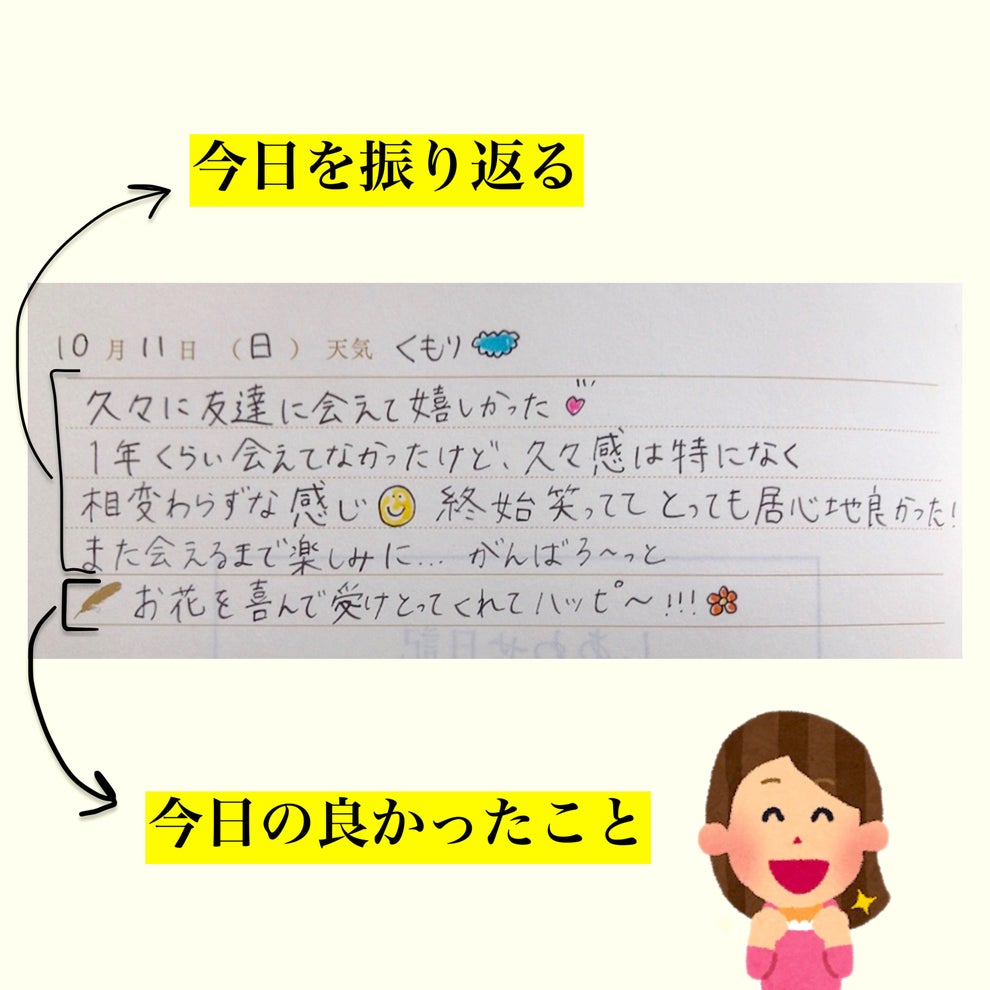 今日を振り返る
10月11日（日）天気 くもり
久々に友達に会えて嬉しかった
1年くらい会えてなかったけど、久々感は特になく
相変わらずな感じ 終始笑ってて とっても居心地良かった!
また会えるまで楽しみに... がんばろ〜っと
お花を喜んで受けとってくれてハッピ〜!!!
しあわせ日記
今日の良かったこと